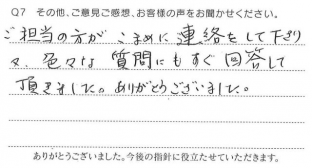 Q7 その他、ご意見ご感想、お客様の声をお聞かせください。
ご担当の方が こまめに 連絡をして下さり
々、色々な 質問にもすぐ 回答して
頂きました。ありがとうございました。
ありがとうございました。今後の指針に役立たせていただきます。